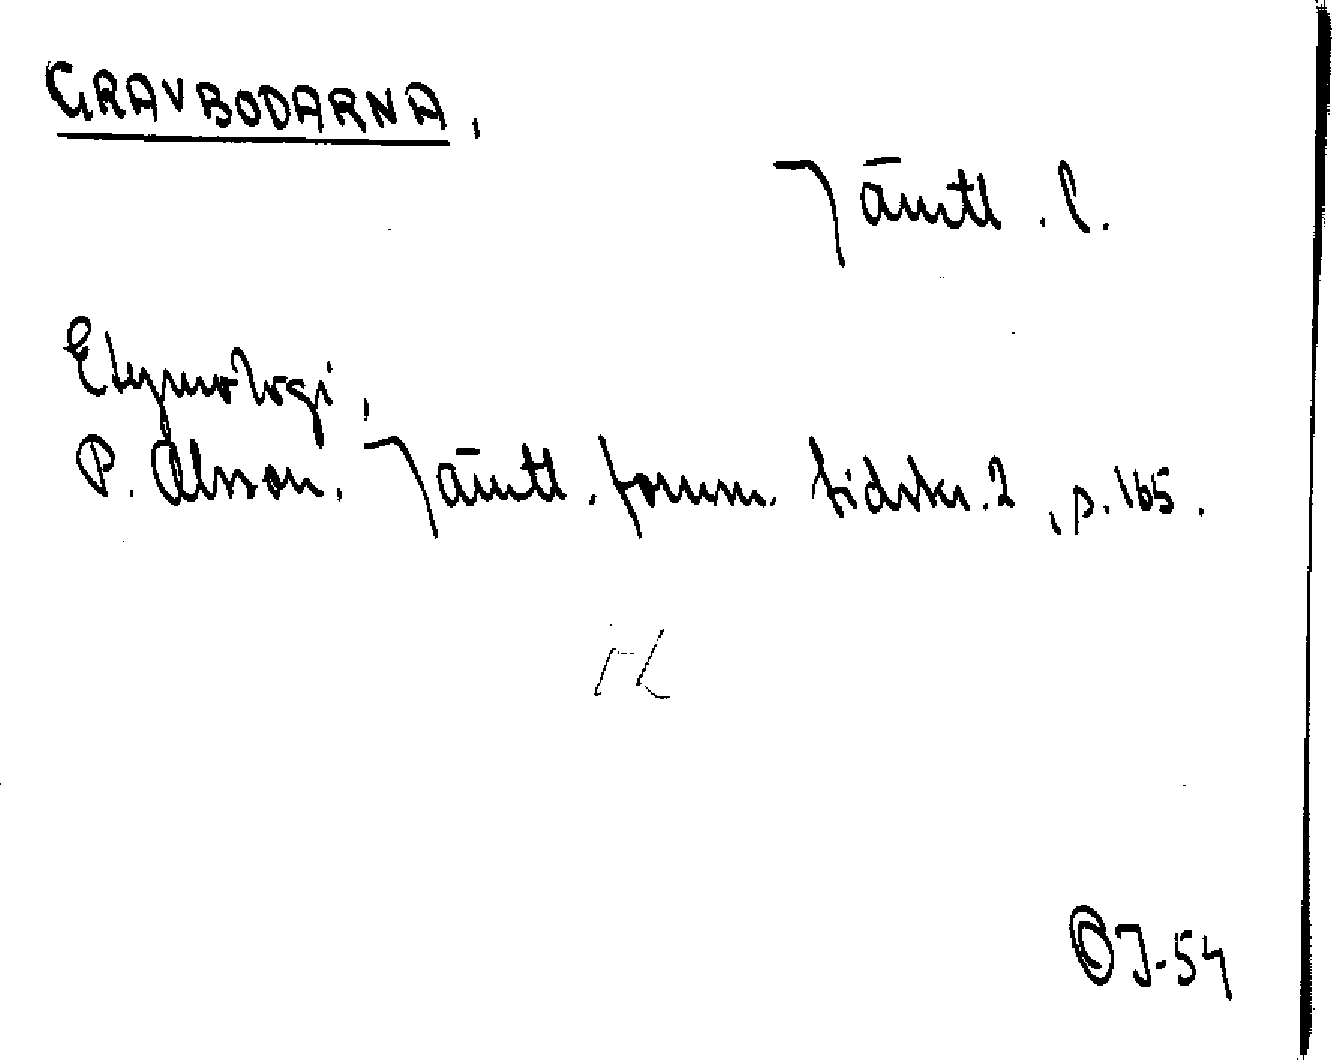 GRAVBODARNA.
Jämtl. l.
Etymologi.
P. Olsson. Jämtl. fornm. tidskr. 2, p. 165.
©J-54